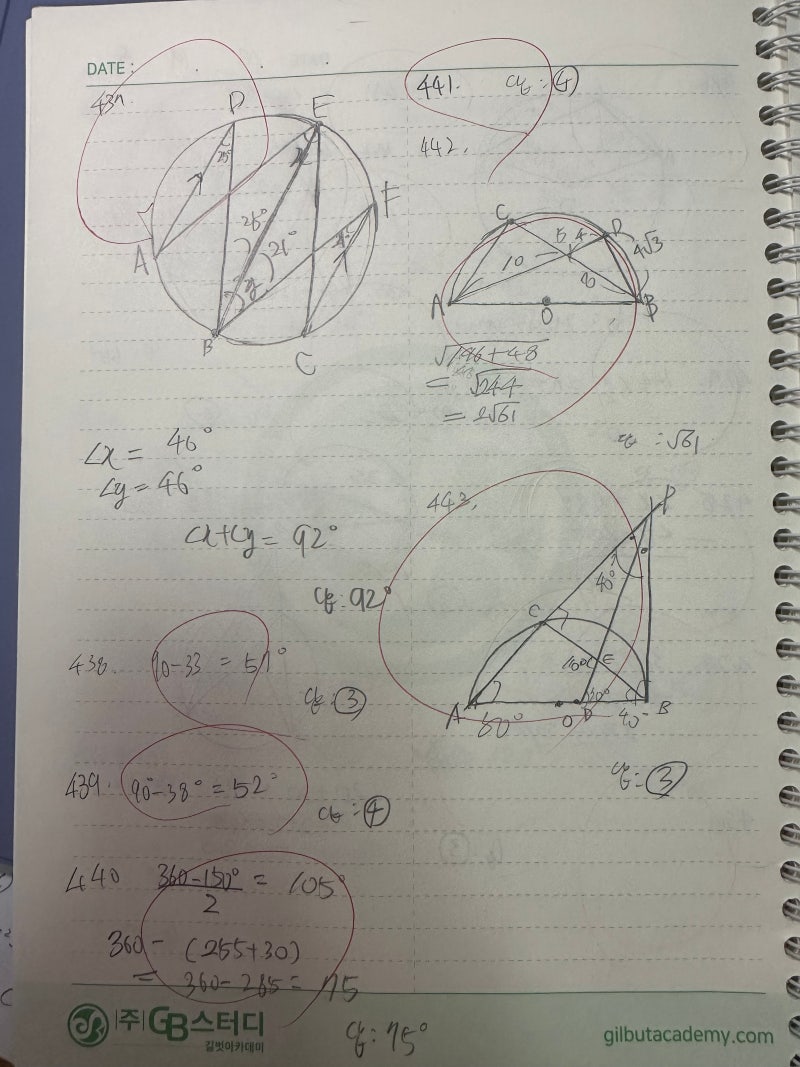 DATE :
437.
D
E
F
A
B
C
∠x = 46°
∠y = 46°
∠x+∠y = 92°
답: 92°
438. 90-33 = 57°
답: ③
439. 90°-38° = 52°
답: ④
440 360-150° / 2 = 105°
360 - (255+30)
= 360-285 = 75
답: 75°
441. 답: ④
442.
C
D
5
4
4√3
10
8
A
O
B
√196+48
= √244
= 2√61
답: √61
443.
P
40°
C
E
A
60°
O
D
40
B
답: ③
(주)GB스터디
길벗아카데미
gilbutacademy.com